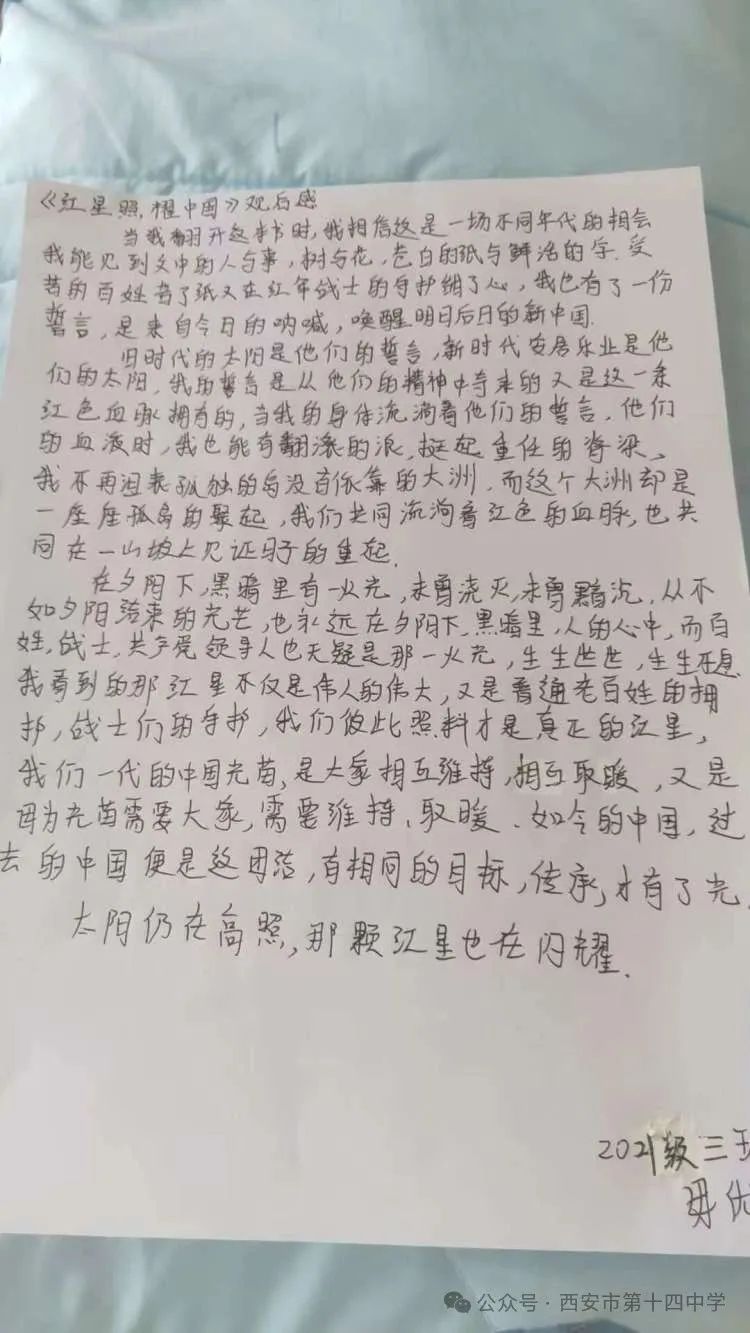 《红星照耀中国》观后感
当我翻开这本书时,我相信这是一场不同年代的相会
我能见到文中的人与事,树与花,苍白的纸与鲜活的字.受
苦的百姓有了纸又在红军战士的守护绑了心,我也有了一份
誓言,是来自今日的呐喊,唤醒明日后日的新中国.
旧时代的太阳是他们的誓言,新时代安居乐业是他
们的太阳.我的誓言是从他们的精神中寻来的又是这一条
红色血脉拥有的,当我的身体流淌着他们的誓言.他们
的血液时,我也能有翻滚的浪,挺起重任的脊梁、
我不再沮丧孤独的岛没有依靠的大洲.而这个大洲却是
一座座孤岛的聚起,我们共同流淌着红色的血脉,也共
同在一山坡上见证日子的重起.
在夕阳下,黑暗里有一火光,未曾浇灭,未曾黯沉.从不
如夕阳落来的光芒,也永远在夕阳下.黑暗里,人的心中,而百
姓,战士,共产党领导人也无疑是那一火光,生生世世,生生不息.
我看到的那红星不仅是伟人的伟大,又是普通老百姓的拥
护,战士们的守护,我们彼此照料才是真正的红星,
我们一代的中国光苗,是大家相互维持,相互取暖,又是
因为光苗需要大家,需要维持、取暖.如今的中国,过
去的中国便是这团活,有相同的目标,传承,才有了光.
太阳仍在高照,那颗红星也在闪耀.
2021级三班
公众号·西安市第十四中学